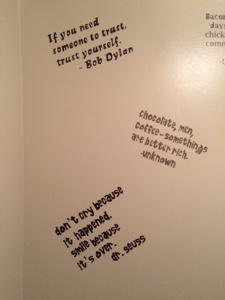 If you need
someone to trust,
trust yourself.
- Bob Dylan
Bacon
days
chick
comm
chocolate, men,
coffee-somethings
are better rich.
-unknown
don't cry because
it happened.
smile because
it's over.
dr. seuss